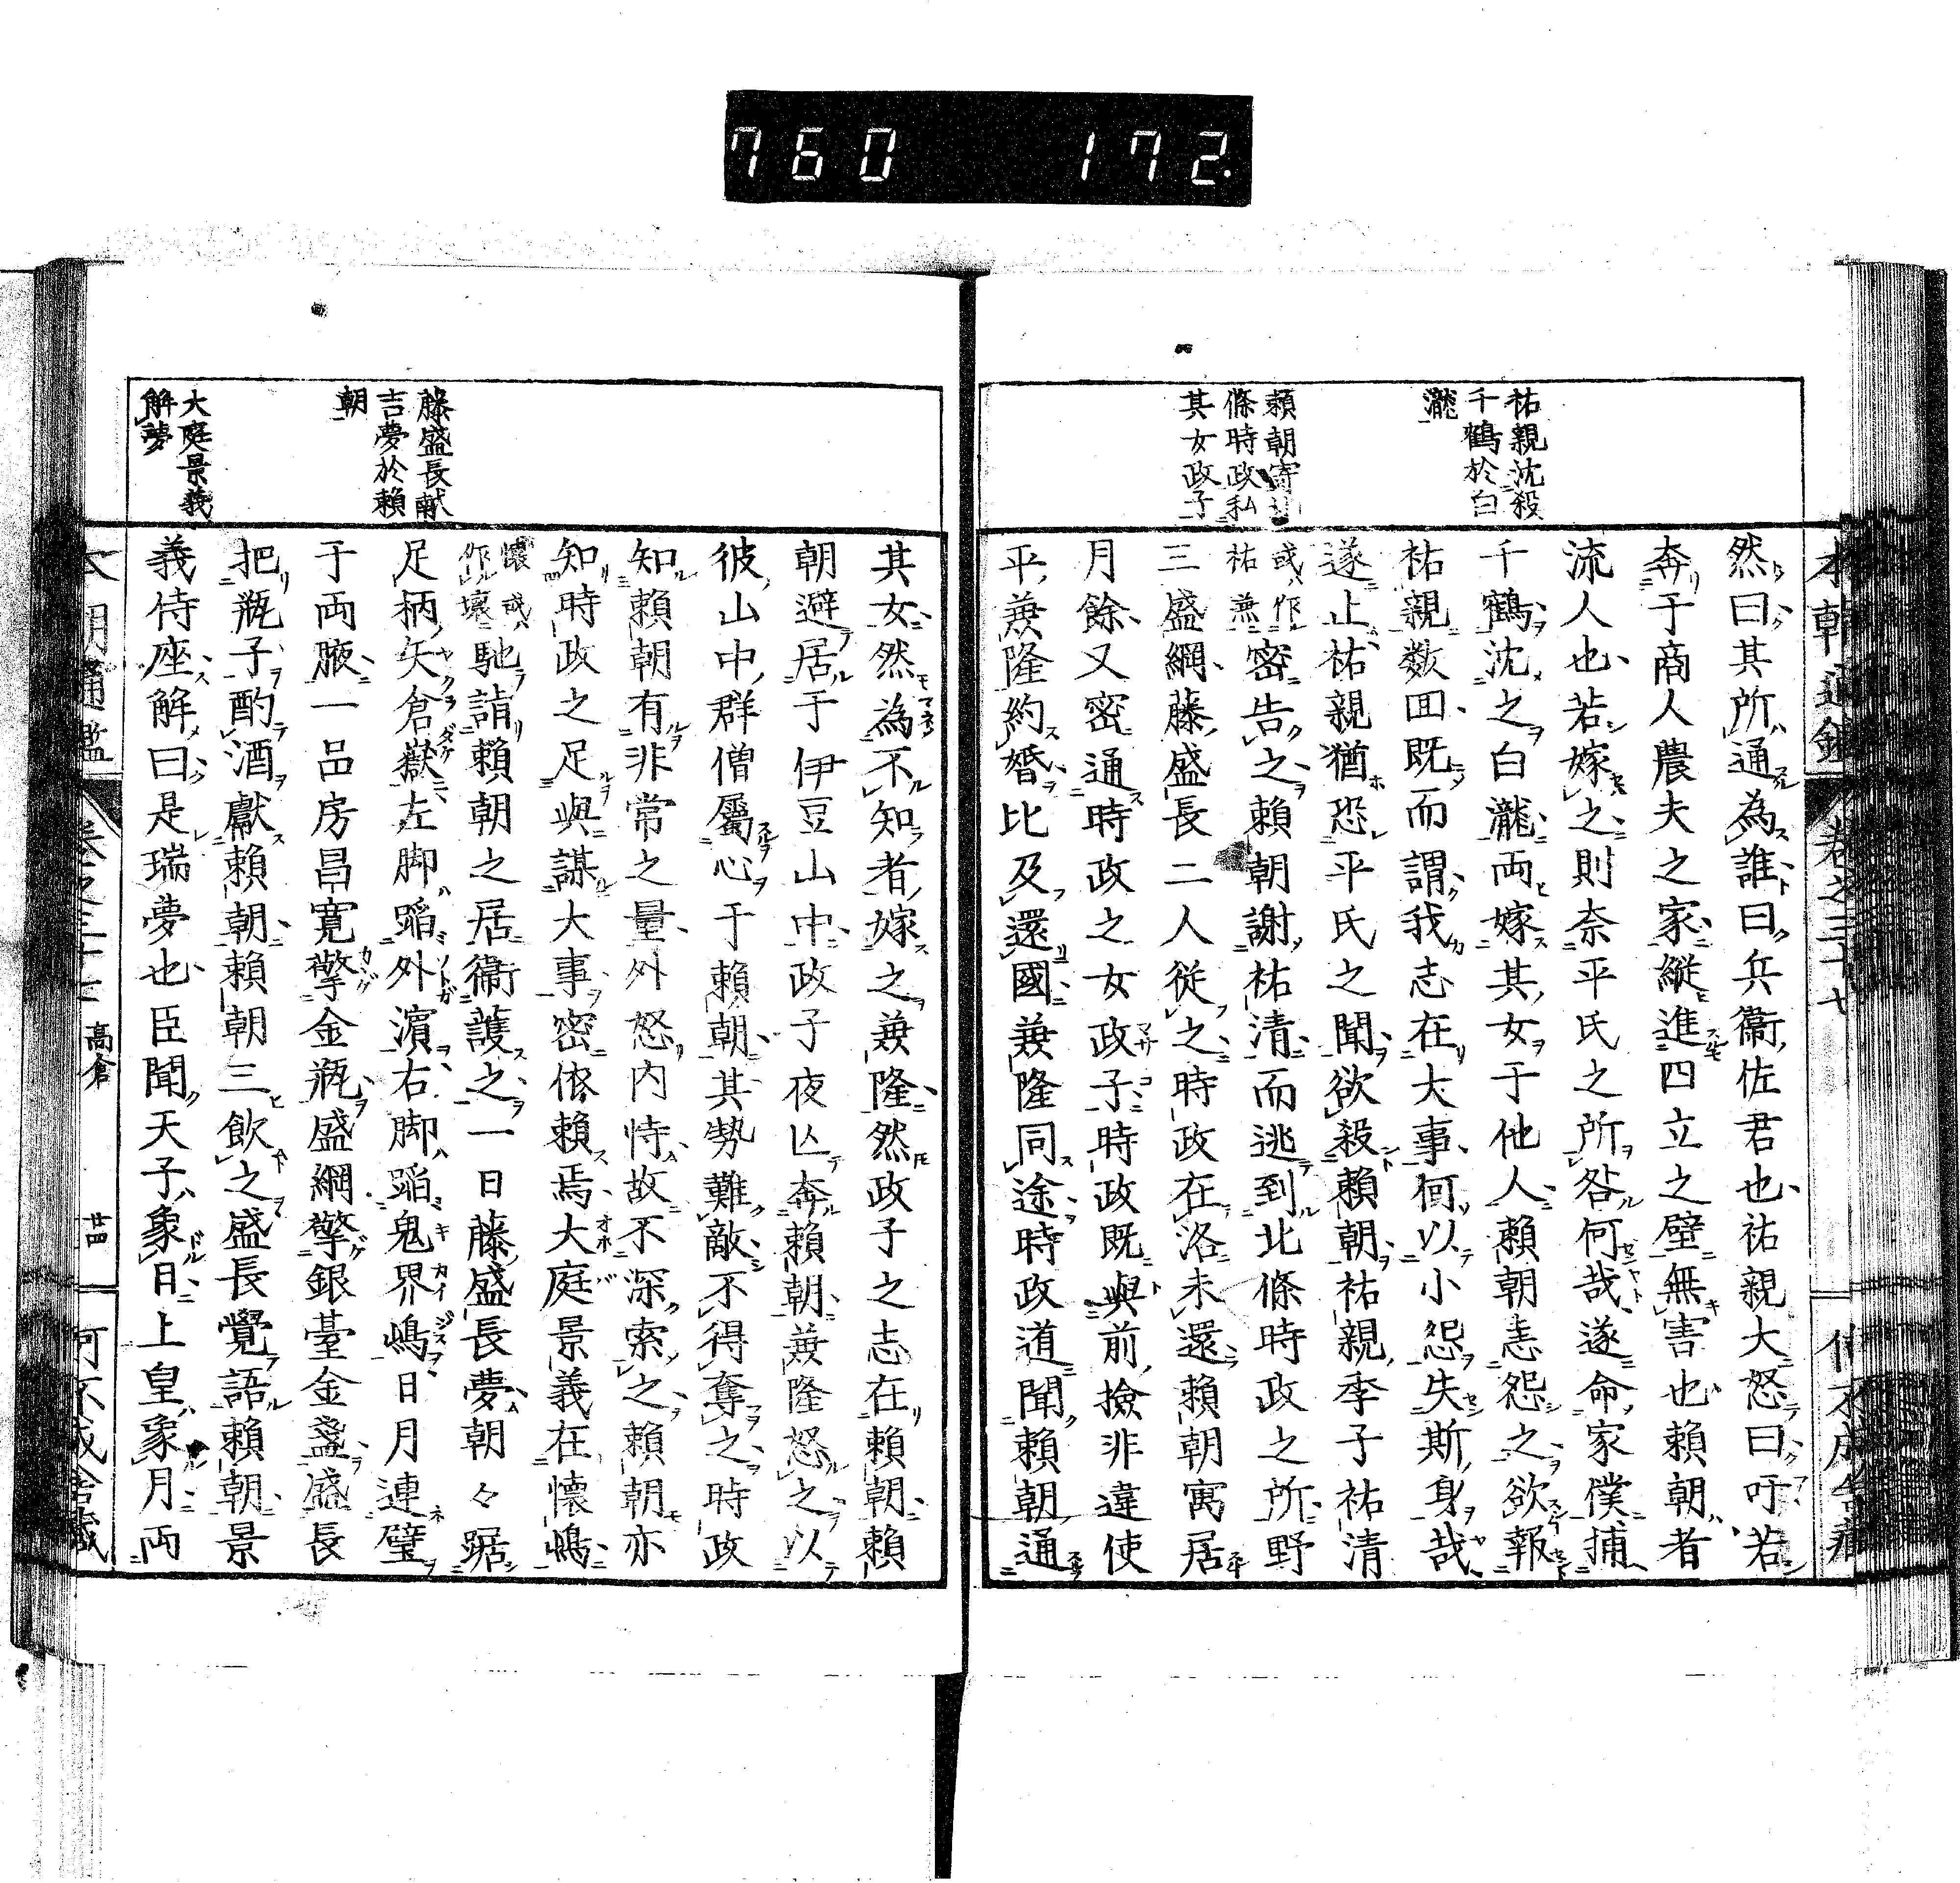 760 172
祐親沈殺
千鶴於白
瀧
頼朝寄
條時政私
其女政子
然曰其所通為誰曰兵衞佐君也祐親大怒曰吁若
奔于商人農夫之家縱進四立之壁無害也頼朝者
流人也若嫁之則奈平氏之所咎何哉遂命家僕捕
千鶴沈之白瀧而嫁其女于他人頼朝恚怨之欲報
祐親数回既而謂我志在大事何以小怨失斯身哉
遂止祐親猶恐平氏之聞欲殺頼朝祐親季子祐清
或作
祐兼
密告之頼朝謝祐清而逃到北條時政之所野
三盛綱藤盛長二人従之時政在洛未還頼朝寓居
月餘又密通時政之女政子時政既與前撿非違使
平兼隆約婚比及還國兼隆同途時政道聞頼朝通
藤盛長献
吉夢於頼
朝
大庭景義
解夢
其女然為不知者嫁之兼隆然政子之志在頼朝頼
朝避居于伊豆山中政子夜亡奔頼朝兼隆怒之以
彼山中群僧屬心于頼朝其勢難敵不得奪之時政
知頼朝有非常之量外怒内恃故不深索之頼朝亦
知時政之足與謀大事密依頼焉大庭景義在懐嶋
懐或
作壊
馳詣頼朝之居衞護之一日藤盛長夢朝々踞
足柄矢倉嶽左脚蹈外濵右脚蹈鬼界嶋日月連璧
于両腋一品房昌寛擎金瓶盛綱擎銀臺金盞盛長
把瓶子酌酒獻頼朝頼朝三飲之盛長覺語頼朝景
義侍座解曰是瑞夢也臣聞天子象日上皇象月両
高倉
廿四